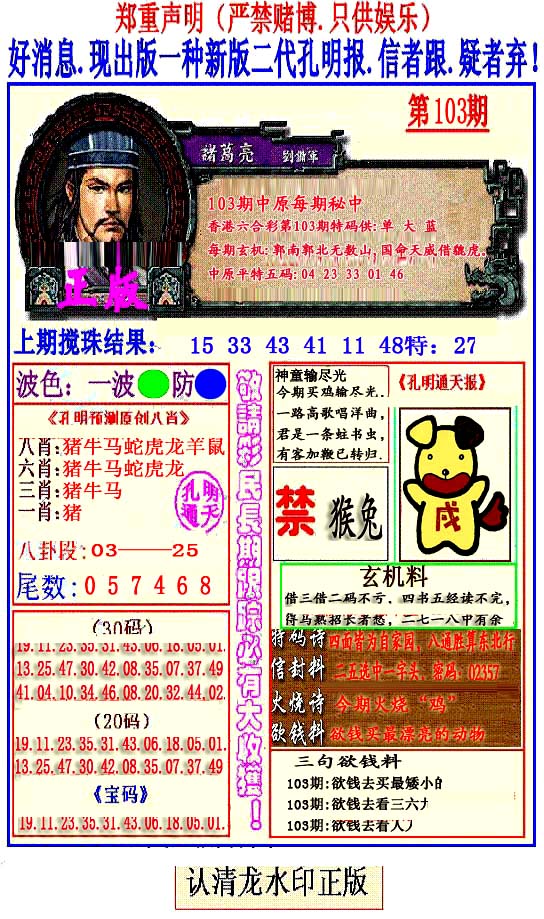 郑重声明（严禁赌博.只供娱乐）
好消息.现出版一种新版二代孔明报.信者跟.疑者弃!
第103期
諸葛亮 劉備軍
103期中原每期秘中
香港六合彩第103期特码供:单 大 蓝
每期玄机:郭南郭北无数山,国命天威借魏虎.
中原平特五码:04 23 33 01 46
正版
上期搅珠结果： 15 33 43 41 11 48特：27
波色：一波 防
《孔明预测原创八肖》
八肖:猪牛马蛇虎龙羊鼠
六肖:猪牛马蛇虎龙
三肖:猪牛马
一肖:猪
孔明通天
八卦段:03——25
尾数:057468
敬請彩民長期跟踪必有大收獲！
神童输尽光
今期买鸡输尽光.
一路高歌唱洋曲,
君是一条蛀书虫,
有客加鞭已转归.
《孔明通天报》
禁 猴兔
戌
玄机料
借三借二码不亏，四书五经读不完,
得马熟招长者愁，二七一八中有余
特码诗 四面皆为自家园，八通胜算东北行
信封料 二五选中一字头、密码：02357
火烧诗 今期火烧“鸡”
欲钱料 欲钱买最漂亮的动物
三句欲钱料
103期:欲钱去买最矮小的
103期:欲钱去看三六九
103期:欲钱去看人
（30码）
19.11.23.35.31.43.06.18.05.01.
13.25.47.30.42.08.35.07.37.49
41.04.10.34.46.08.20.32.44.02.
（20码）
19.11.23.35.31.43.06.18.05.01.
13.25.47.30.42.08.35.07.37.49
《宝码》
19.11.23.35.31.43.06.18.05.01.
认清龙水印正版